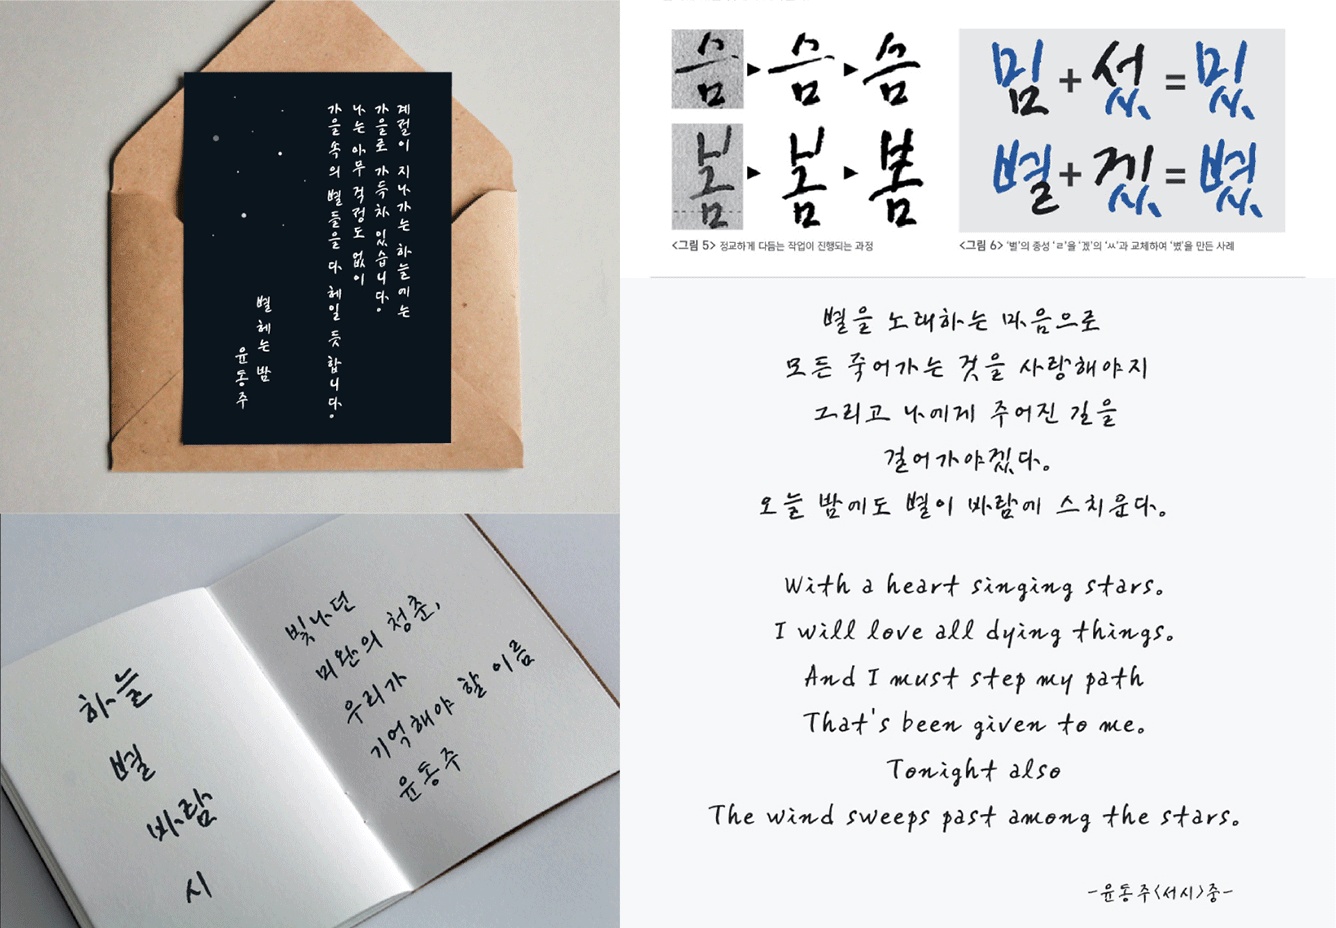 계절이 지나가는 하늘에는
가을로 가득차 있습니다.
나는 아무 걱정도 없이
가을속의 별들을 다 헤일 듯 합니다.
별 헤는 밤
윤동주
하늘
별
바람
시
빛나던
미완의 청춘,
우리가
기억해야 할 이름
윤동주
슴 ▶ 슴 ▶ 슴
봄 ▶ 봄 ▶ 봄
<그림 5> 정교하게 다듬는 작업이 진행되는 과정
밈 + 섰 = 밌
별 + 겠 = 볐
<그림 6> '별'의 종성 'ㄹ'을 '겠'의 'ㅆ'과 교체하여 '볐'을 만든 사례
별을 노래하는 마음으로
모든 죽어가는 것을 사랑해야지
그리고 나에게 주어진 길을
걸어가야겠다.
오늘 밤에도 별이 바람에 스치운다.
With a heart singing stars.
I will love all dying things.
And I must step my path
That's been given to me.
Tonight also
The wind sweeps past among the stars.
-윤동주<서시>중-